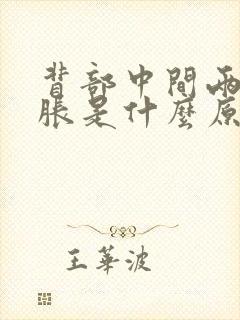 背部中間兩
脹是什麼原
王華波